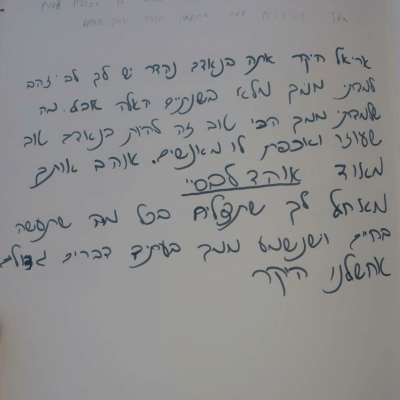 אריאל היקר אתה בנאדם נהדר יש לך לב זהב
למדתי ממך מלא בשנתיים האלה אבל מה
שלמדתי ממך הכי טוב זה להיות בנאדם טוב
שעוזר ואכפת לו מאנשים. אוהב אותך
מאוד אוהד
מאחל לך שתצליח בכל מה שתעשה
בחיים ושנשמע ממך בעתיד דברים גדולים
אחשלנו היקר